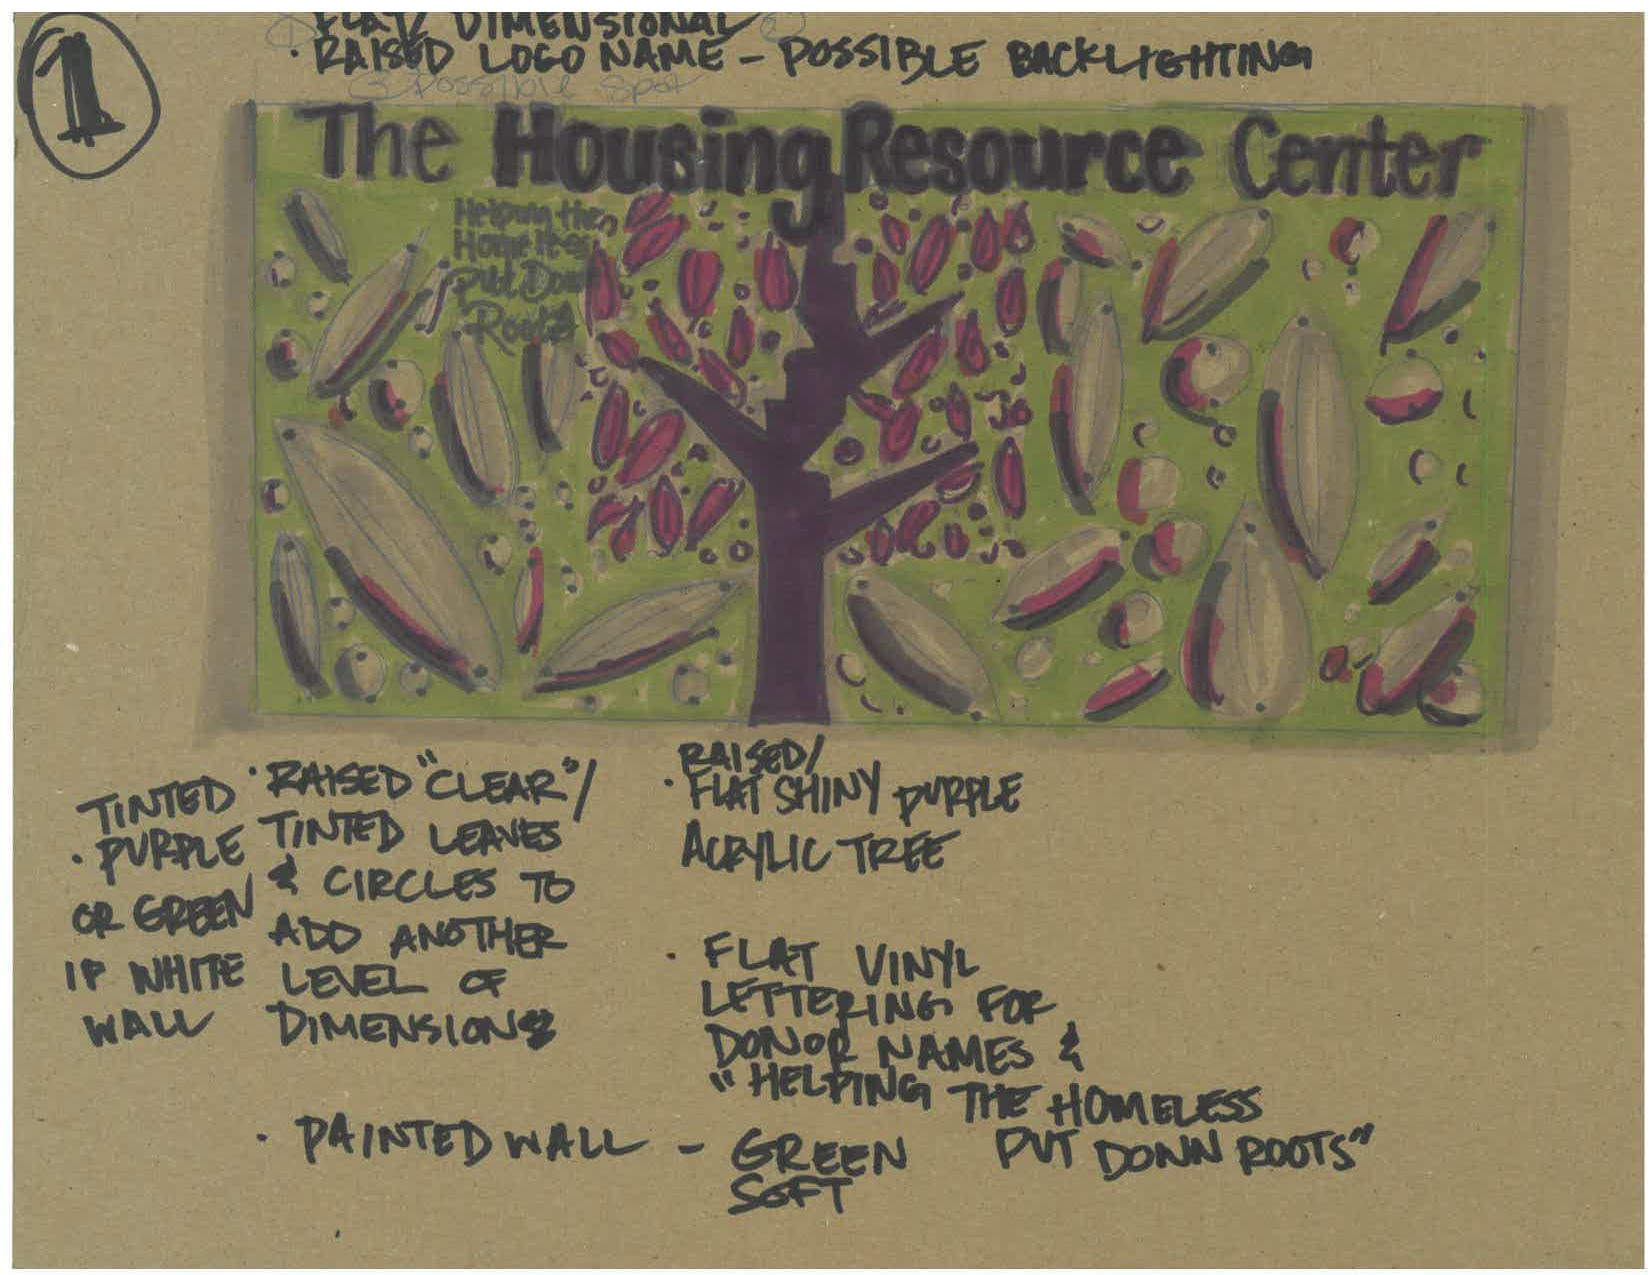 1
FLAT/ DIMENSIONAL
• RAISED LOGO NAME – POSSIBLE BACKLIGHTING
possible spot
The Housing Resource Center
Helping the
Homeless
Put Down
Roots
TINTED
• PURPLE
OR GREEN
IF WHITE
WALL
• RAISED "CLEAR"/
TINTED LEAVES
& CIRCLES TO
ADD ANOTHER
LEVEL OF
DIMENSION
RAISED/
• FLAT SHINY PURPLE
ACRYLIC TREE
• FLAT VINYL
LETTERING FOR
DONOR NAMES &
"HELPING THE HOMELESS
PUT DOWN ROOTS"
• PAINTED WALL – GREEN
SOFT